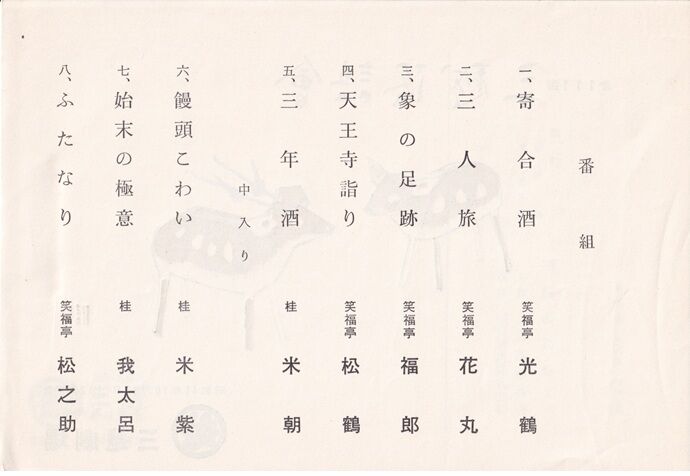 番組
一、寄合酒 笑福亭 光鶴
二、三人旅 笑福亭 花丸
三、象の足跡 笑福亭 福郎
四、天王寺詣り 笑福亭 松鶴
五、三年酒 桂 米朝
中入り
六、饅頭こわい 桂 米紫
七、始末の極意 桂 我太呂
八、ふたなり 笑福亭 松之助